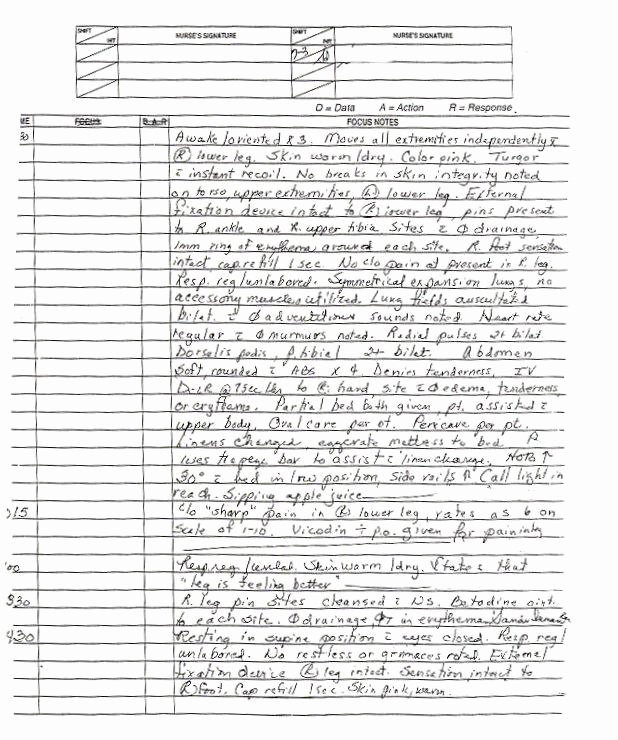 SHIFT INIT NURSE'S SIGNATURE SHIFT INIT NURSE'S SIGNATURE
7-3
D = Data A = Action R = Response
ME FOCUS D A R FOCUS NOTES
30 Awake/oriented x 3. Moves all extremities independently c̄
Ⓡ lower leg. Skin warm/dry. Color pink. Turgor
c̄ instant recoil. No breaks in skin integrity noted
on torso, upper extremities, lower leg. External
fixation device intact to Ⓡ lower leg, pins present
to R. ankle and R. upper tibia. Sites c̄ Ø drainage,
1mm ring of erythema around each site. R. foot sensation
intact cap refill 1 sec. No c/o pain at present in R. leg.
Resp. reg/unlabored. Symmetrical expansion lungs, no
accessory muscles utilized. Lung fields auscultated
bilat. c̄ Ø adventitious sounds noted. Heart rate
regular c̄ Ø murmurs noted. Radial pulses 2+ bilat.
Dorsalis pedis, p. tibial 2+ bilat. Abdomen
soft, rounded c̄ ABS x 4. Denies tenderness, IV
to hand site c̄ Ø edema, tenderness
or erythema. Partial bed bath given, pt. assisted c̄
upper body. Oral care per pt. Pericare per pt.
Linens changed eggcrate mattress to bed.
uses trapeze bar to assist c̄ linen change. HOB ↑
30° c̄ bed in low position, side rails ↑ Call light in
reach. Sipping apple juice
015 c/o "sharp" pain in Ⓡ lower leg, rates as 6 on
scale of 1-10. Vicodin p.o. given for pain
00 Resp reg/unlab. Skin warm/dry. States that
"leg is feeling better"
330 R. leg pin sites cleansed c̄ NS. Betadine oint.
to each site. Ø drainage, in erythema
430 Resting in supine position c̄ eyes closed. Resp. reg/
unlabored. No restless or grimaces noted. External
fixation device Ⓡ leg intact. Sensation intact to
Ⓡ foot. Cap refill 1 sec. Skin pink, warm.